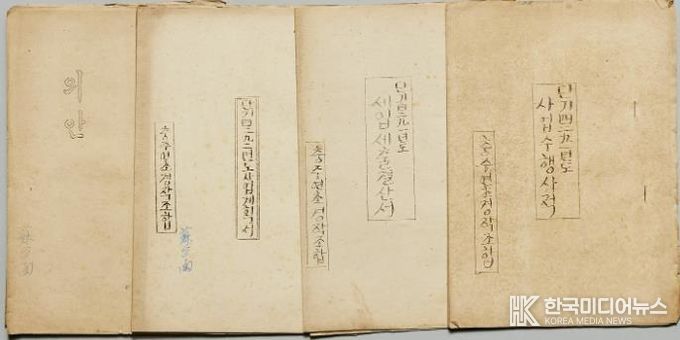 의안
단기四二九二년도사업계획서
충주연초경작조합
단기四二九一년도
세입세출결산서
충주연초경작조합
단기四二九一년도
사업수행사적
충주연초경작조합
HK 한국미디어뉴스
KOREA MEDIA NEWS